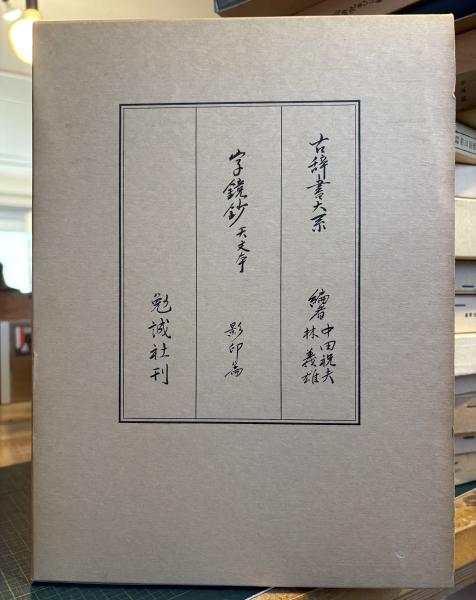 古辞書大系
編者 中田祝夫
林義雄
字鏡鈔 天文本
影印篇
勉誠社刊